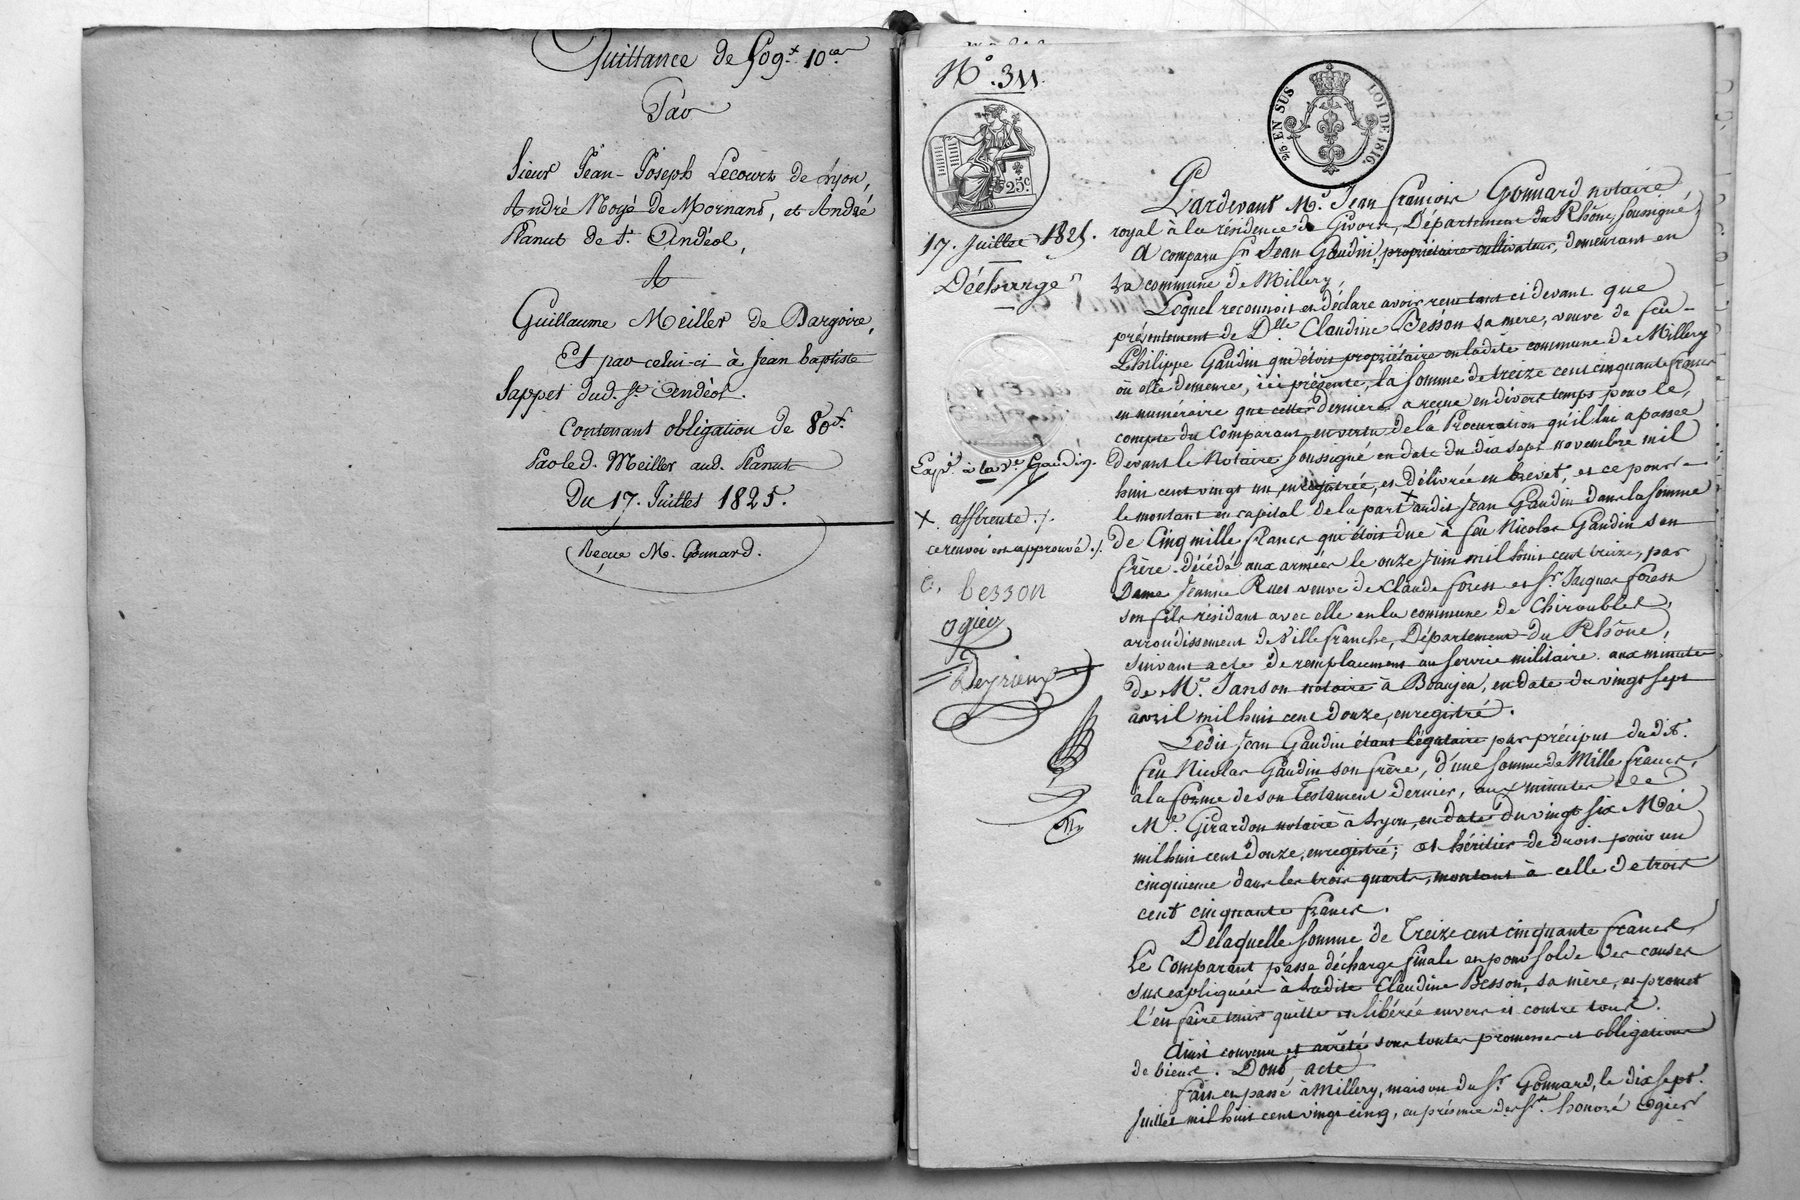 Quittance de 509.f 10.ce
Par
Sieur Jean-Joseph Lecourt de Lyon,
André Noyé de Mornant, et André
Planut de St. Andéol,
A
Guillaume Meiller de Dargoire,
Et par celui-ci à Jean baptiste
Sappet dud. St. Andéol.
Contenant obligation de 80f.
Par led. Meiller aud. Planut
Du 17. Juillet 1825.
Reçue M. Gonnard.
N.° 311.
25c.
2/5 EN SUS
LOI DE 1816.
17. Juillet 1825.
Décharge
Exp.é à la v.e Gaudin.
+ afférente ./.
ce renvoi est approuvé ./.
C. besson
Ogier
Deyrieux
Pardevant M.e Jean françois Gonnard notaire
royal à la résidence de Givors, Département du Rhône, soussigné,
A comparu Sr. Jean Gaudin, propriétaire cultivateur, demeurant en
la commune de Millery,
Lequel reconnoit et déclare avoir reçu tant ci devant que
présentement de D.lle Claudine Besson sa mère, veuve de feu
Philippe Gaudin qui étoit propriétaire en ladite commune de Millery
où elle demeure, ici présente, la somme de treize cent cinquante francs
en numéraire que cette dernière a reçue en divers temps pour le
compte du Comparant, en vertu de la Procuration qu'il lui a passée
devant le Notaire soussigné en date du dix sept novembre mil
huit cent vingt un, enregistrée, et délivrée en brevet, et ce pour
le montant en capital de la part + audit Jean Gaudin dans la somme
de Cinq mille francs qui étoit due à feu Nicolas Gaudin son
frère décédé aux armées le onze juin mil huit cent treize, par
Dame Jeanne Ruet veuve de Claude forest et Sr. Jacques forest
son fils résidant avec elle en la commune de Chiroubles,
arrondissement de Villefranche, Département du Rhône,
suivant acte de remplacement au service militaire aux minutes
de M.e Janson notaire à Beaujeu, en date du vingt sept
avril mil huit cent douze, enregistré.
Ledit Jean Gaudin étant légataire par préciput du dit.
feu Nicolas Gaudin son frère, d'une somme de Mille francs,
à la forme de son Testament dernier, aux minutes de
M.e Girardon notaire à Lyon, en date du vingt six Mai
mil huit cent douze, enregistré; et héritier de droit pour un
cinquième dans les trois quarts, montant à celle de trois
cent cinquante francs.
De laquelle somme de Treize cent cinquante francs
Le Comparant passe décharge finale et pour solde des causes
sus expliquées à ladite Claudine Besson, sa mère, et promet
l'en faire tenir quitte et libérée envers et contre tous.
Ainsi convenu et arrêté sous toutes promesses et obligations
de biens. Dont acte
Fait et passé à Millery, maison du Sr. Gonnard, le dix sept.
Juillet mil huit cent vingt cinq, en présence de Sr. honoré Ogier